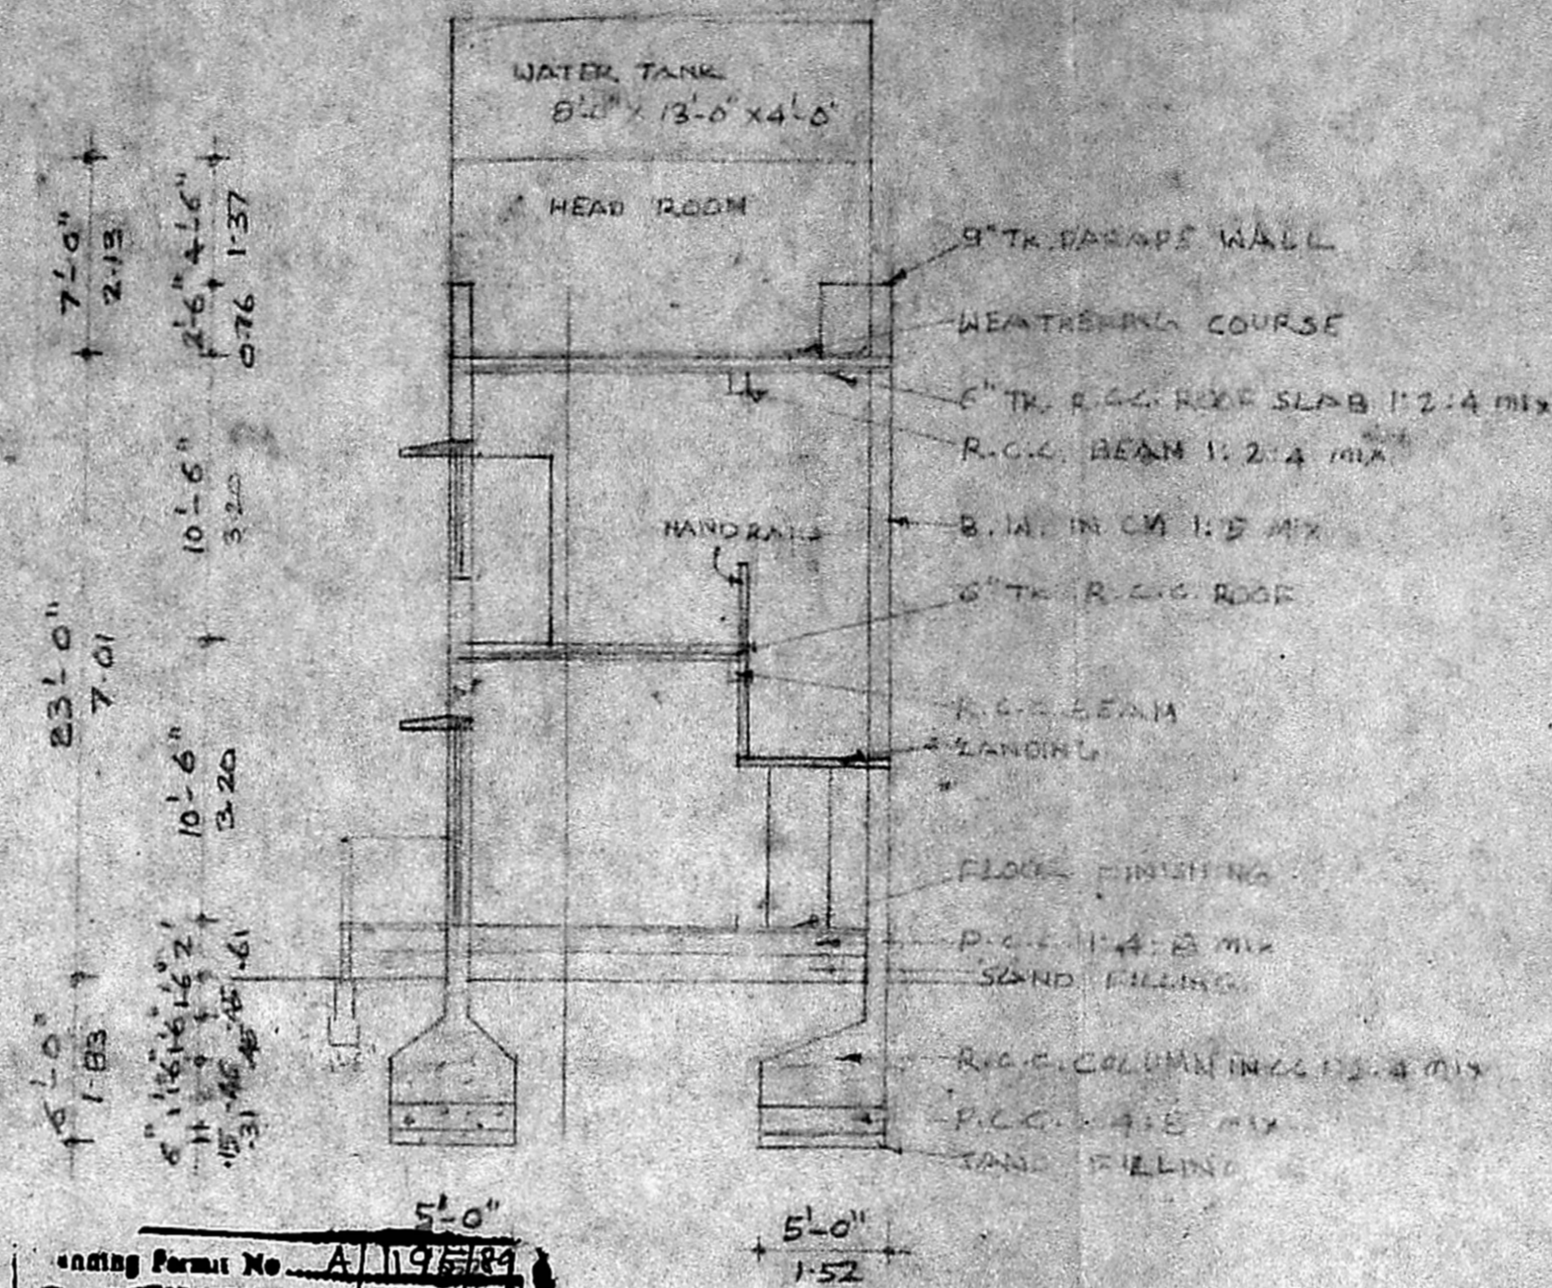 WATER TANK
8'-0" X 13'-0" X 4'-0"
HEAD ROOM
9" TK. PARAPE WALL
WEATHERING COURSE
6" TK. R.C.C. ROOF SLAB 1:2:4 mix
R.C.C. BEAM 1:2:4 MIX
B.W. IN CM 1:5 MIX
HANDRAILS
6" TK R.C.C ROOF
R.C.C. BEAM
LANDING
FLOOR FINISHING
P.C.C. 1:4:8 mix
SAND FILLING
R.C.C. COLUMN IN CC 1:2:4 MIX
P.C.C. 4:8 MIX
SAND FILLING
7'-0"
2.13
2'-6" 4'-6"
0.76 1.37
10'-6"
3.20
23'-0"
7.01
10'-6"
3.20
6'-0"
1.83
6" 1' 1'6" 1'6" 1'6" 2'
.15 .31 .45 .45 .45 .61
5'-0"
5'-0"
1.52
anning Permit No A/195/89